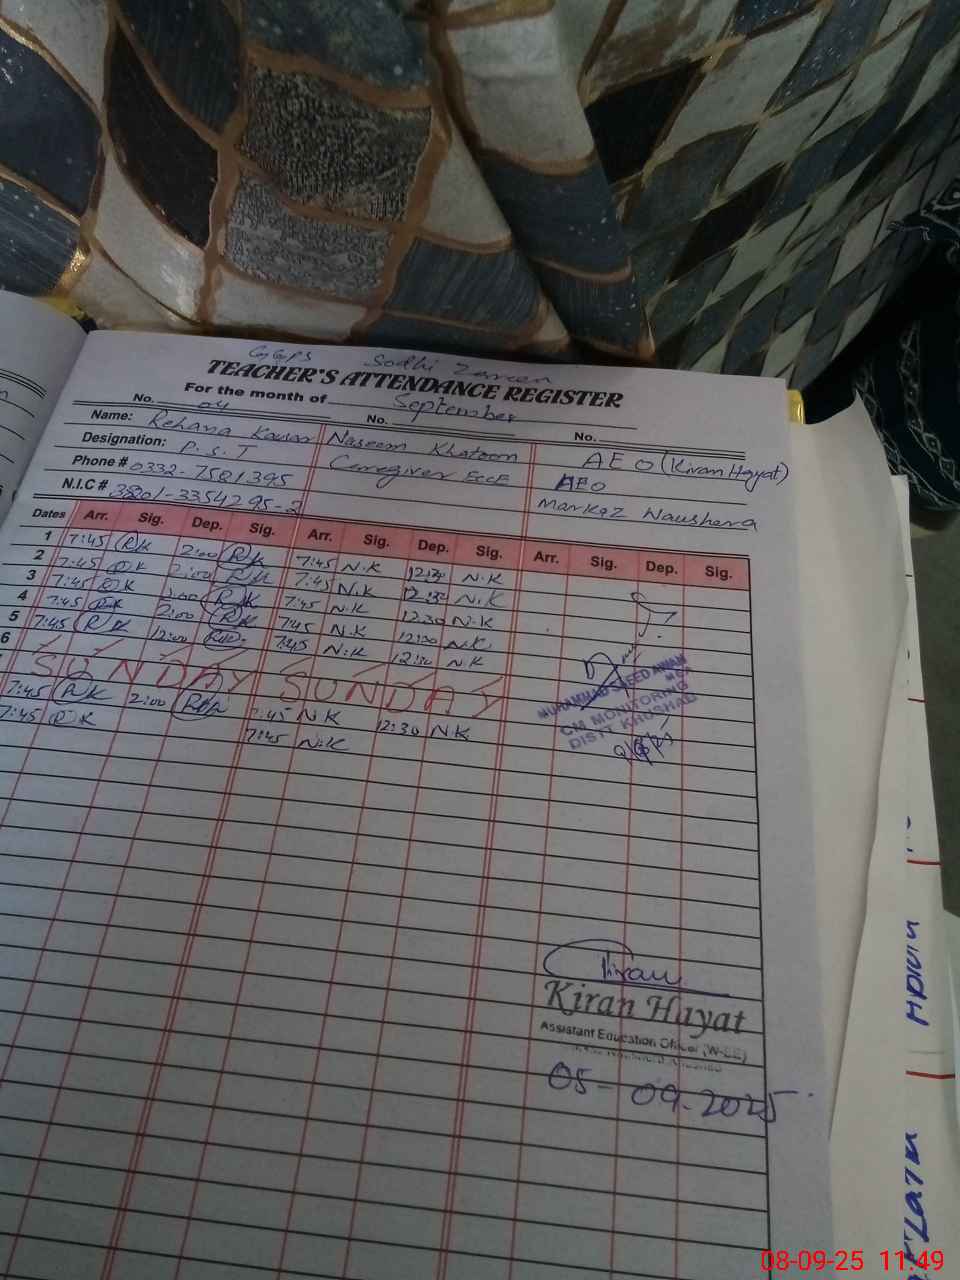 GGPS Sodhi Zareen
TEACHER'S ATTENDANCE REGISTER
For the month of September
No. 04 No. No.
Name: Rehana Kausar Naseem Khatoon AEO (Kiran Hayat)
Designation: P.S.T Caregiver ECCE AEO
Phone # 0332-7581395 Markaz Naushera
N.I.C #
Dates Arr. Sig. Dep. Sig. Arr. Sig. Dep. Sig. Arr. Sig. Dep. Sig.
1 7:45 RK 2:00 RK 7:45 N.K 12:30 N.K
2 7:45 RK 2:00 RK 7:45 N.K 12:30 N.K
3 7:45 RK 2:00 RK 7:45 N.K 12:30 N.K
4 7:45 RK 2:00 RK 7:45 N.K 12:30 N.K
5 7:45 RK 12:00 7:45 N.K 12:30 N.K
6
SUNDAY SUNDAY
7:45 RK 2:00 7:45 N.K 12:30 N.K
7:45 RK 7:45 N.K
MUHAMMAD SAEED AWAN
CM MONITORING
DISTT KHUSHAB
Kiran
Kiran Hayat
Assistant Education Officer (W-EE)
05-09-2025
08-09-25 11:49